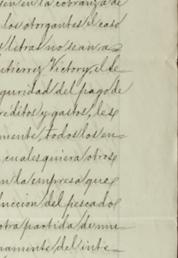 en en la cobranza de
los otorgantes el caso
s letras no sean a-
utiérrez Victory, el se
guridad del pago de
réditos y gastos, les
mente, todos los en-
cualesquiera otros
en la empresa que
ducción del pescado
otra partida de mu
namente del inte-